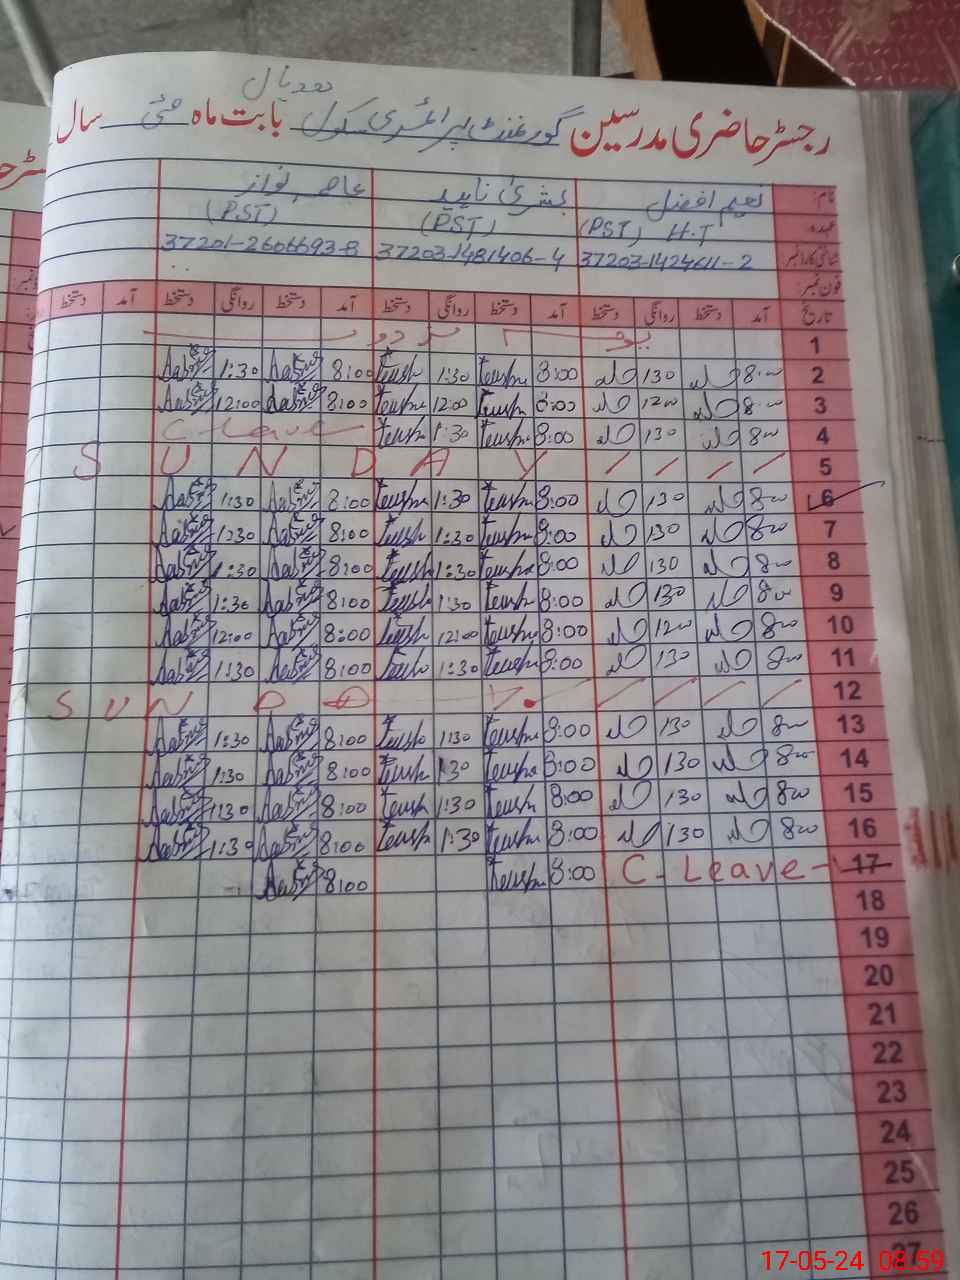 رجسٹر حاضری مدرسین گورنمنٹ پرائمری سکول بابت ماہ مئی سال
نام: نعیم افضل بشریٰ ناہید عاصمہ نواز
عہدہ: H.T (PST) (PST) (PST)
شناختی کارڈ نمبر 37203-1424611-2 37203-1481406-4 37201-2606693-8
فون نمبر:
تاریخ آمد دستخط روانگی دستخط آمد دستخط روانگی دستخط آمد دستخط روانگی دستخط آمد دستخط
1 یوم مزدور
2 8:00 130 8:00 1:30 8:00 1:30
3 8:00 1200 8:00 12:00 8:00 12:00
4 800 130 8:00 1:30 C-Leave
5 S U N D A Y
6 800 130 8:00 1:30 8:00 1:30
7 800 130 8:00 1:30 8:00 1:30
8 800 130 8:00 1:30 8:00 1:30
9 800 130 8:00 1:30 8:00 1:30
10 800 1200 8:00 12:00 8:00 12:00
11 800 130 8:00 1:30 8:00 1:30
12 S U N D A Y
13 800 130 8:00 1:30 8:00 1:30
14 800 130 8:00 1:30 8:00 1:30
15 800 130 8:00 1:30 8:00 1:30
16 800 130 8:00 1:30 8:00 1:30
17 C-Leave 8:00 8:00
18
19
20
21
22
23
24
25
26
27
17-05-24 08:59